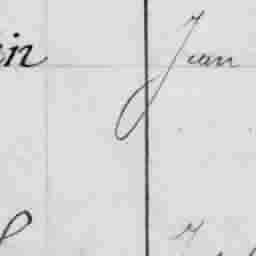 in Jean